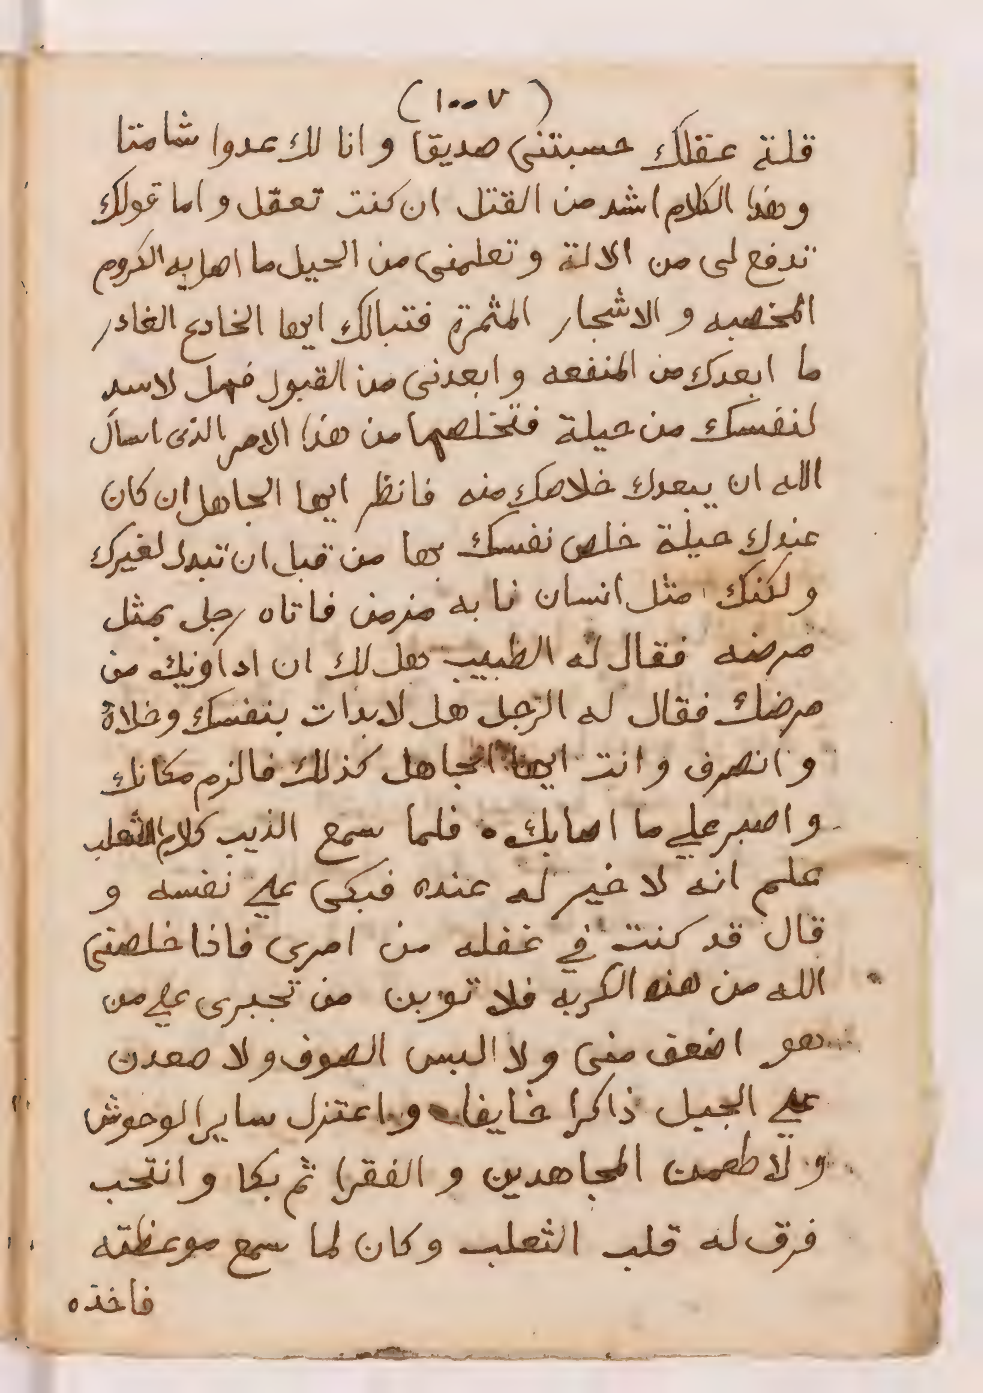 (١٠٠٧)
قلة عقلك حسبتنى صديقا وانا لك عدوا شامتا
وهذا الكلام اشد من القتل ان كنت تعقل واما قولك
تدفع لى من الالة وتعلمنى من الحيل ما اصل به الكروم
المخصبه والاشجار المثمرة فتبالك ايها الخادع الغادر
ما ابعدك من المنفعه وابعدنى من القبول فهل لا
لنفسك من حيلة فتخلصها من هذا الامر الذى اسال
الله ان يبعدك خلاصك منه فانظر ايها الجاهل ان كان
عندك حيلة خلص نفسك بها من قبل ان تبدل لغيرك
ولكنك مثل انسان نا به مزمن فاتاه رجل بمثل
مرضه فقال له الطبيب هل لك ان اداويك من
مرضك فقال له الرجل هل لا بدات بنفسك وخلاه
وانصرف وانت ايها الجاهل كذلك فالزم مكانك
واصبر علي ما اصابك ٥ فلما سمع الذيب كلام الثعلب
علم انه لا خير له عنده فبكى علي نفسه و
قال قد كنت في غفله من امرى فاذا خلصنى
الله من هذه الكربه فلا توبن من تجبرى علي من
هو اضعف منى ولا البس الصوف ولا صعدن
علي الجبل ذاكرا خايفا واعتزل ساير الوحوش
ولاطعمن المجاهدين والفقرا ثم بكا وانتحب
فرق له قلب الثعلب وكان لما سمع موعظته
فاخذه